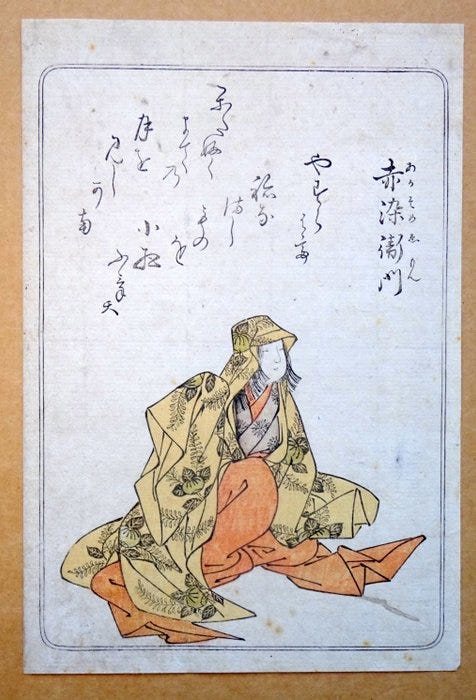 赤染衛門
あかそめゑもん
やすら
はて
寝な
まし
もの
を
小夜
ふけて
かたふく
まての
月を
見し
かな